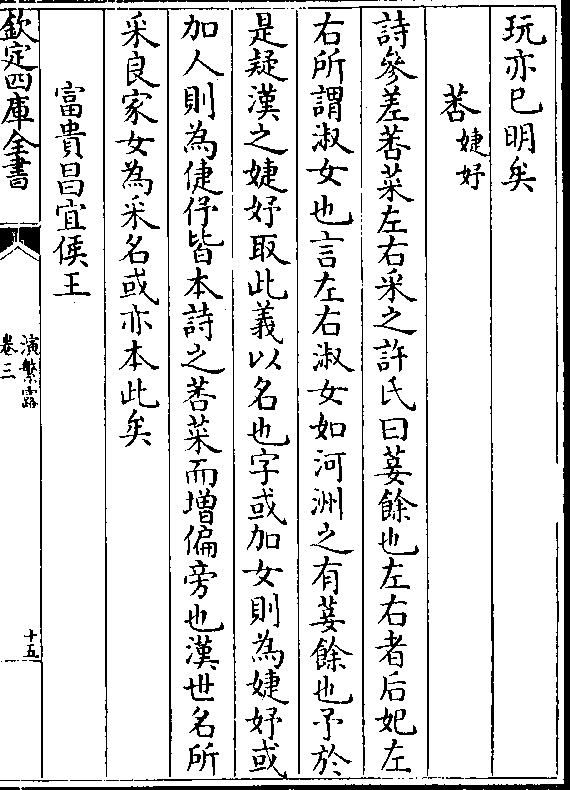 玩亦已明矣
荖婕妤
詩參差荖菜左右采之許氏曰荽餘也左右者后妃左
右所謂淑女也言左右淑女如河洲之有荽餘也予於
是疑漢之婕妤取此義以名也字或加女則為婕妤或
加人則為倢伃皆本詩之荖菜而增偏旁也漢世名所
采良家女為采名或亦本此矣
富貴昌宜侯王
欽定四庫全書
演繁露
卷三
十五